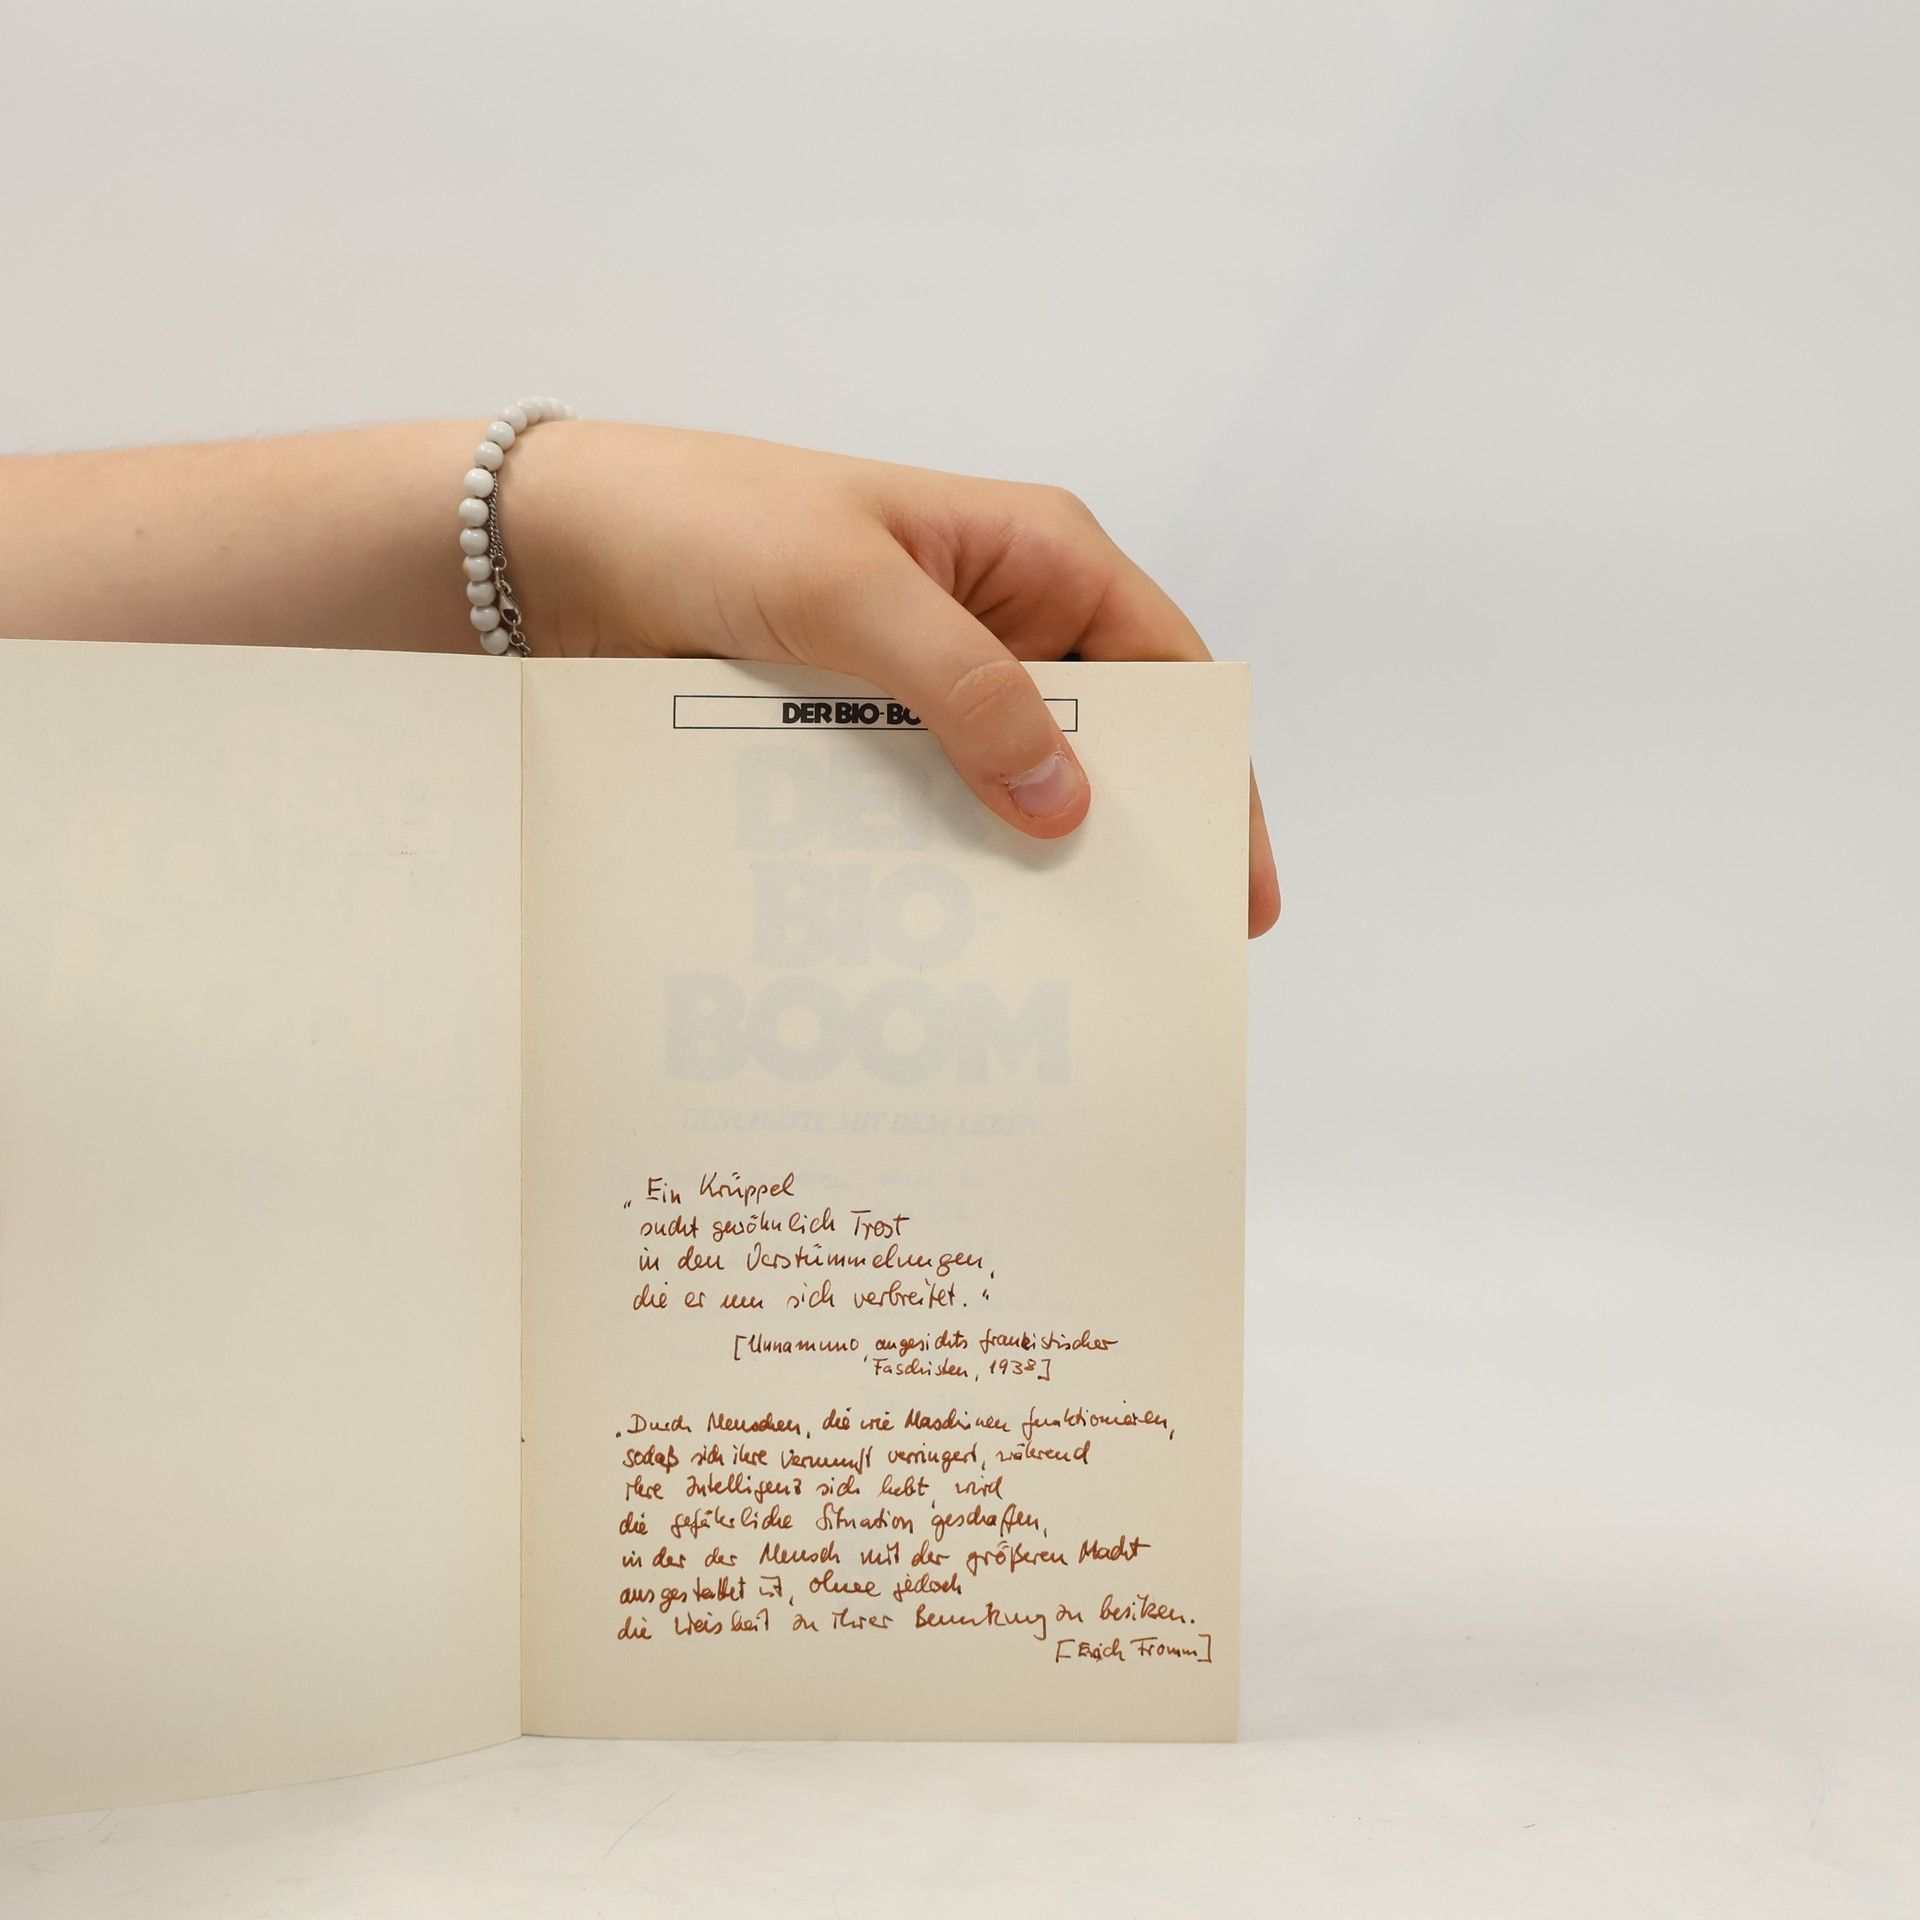 DER BIO-BO
DER
BIO-
BOOM
GESCHÄFTE MIT DEM LEBEN
„Ein Krüppel
sucht gewöhnlich Trost
in den Verstümmelungen,
die er um sich verbreitet.“
[Unnamuno, angesichts frankistischer
Faschisten, 1938]
„Durch Menschen, die wie Maschinen funktionieren,
sodaß sich ihre Vernunft verringert, während
ihre Intelligenz sich hebt, wird
die gefährliche Situation geschaffen,
in der der Mensch mit der größeren Macht
ausgestattet ist, ohne jedoch
die Weisheit zu ihrer Benutzung zu besitzen.
[Erich Fromm]